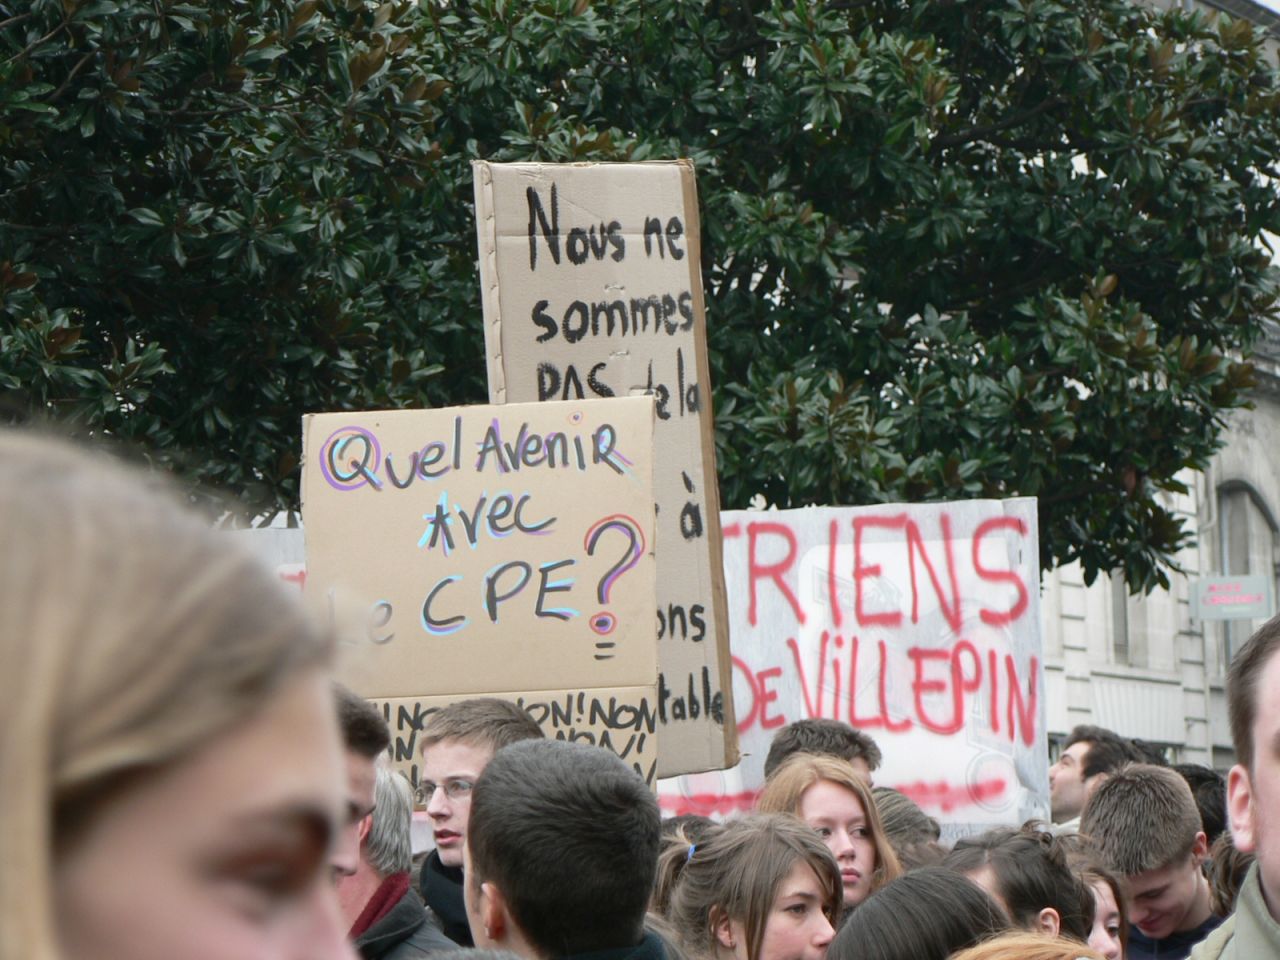 Nous ne
sommes
PAS de la
à
ons
table
Quel Avenir
Avec
Le CPE?
NON! NON
TRIENS
DE VILLEPIN